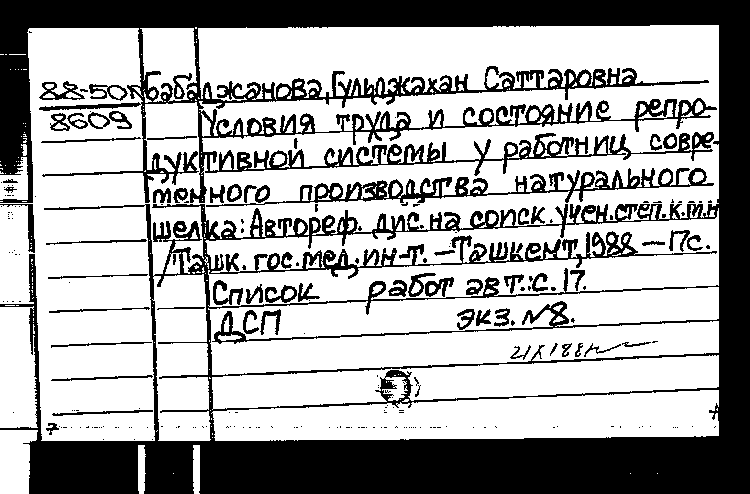 88-50л Бабаджанова, Гульджахан Саттаровна
8609 Условия труда и состояние репро-
дуктивной системы у работниц совре-
менного производства натурального
шелка: Автореф. дис. на соиск. учен. степ. к.м.н
/Ташк. гос. мед. ин-т. – Ташкент, 1988 – 17с.
Список работ авт.: с. 17.
ДСП экз. №8.